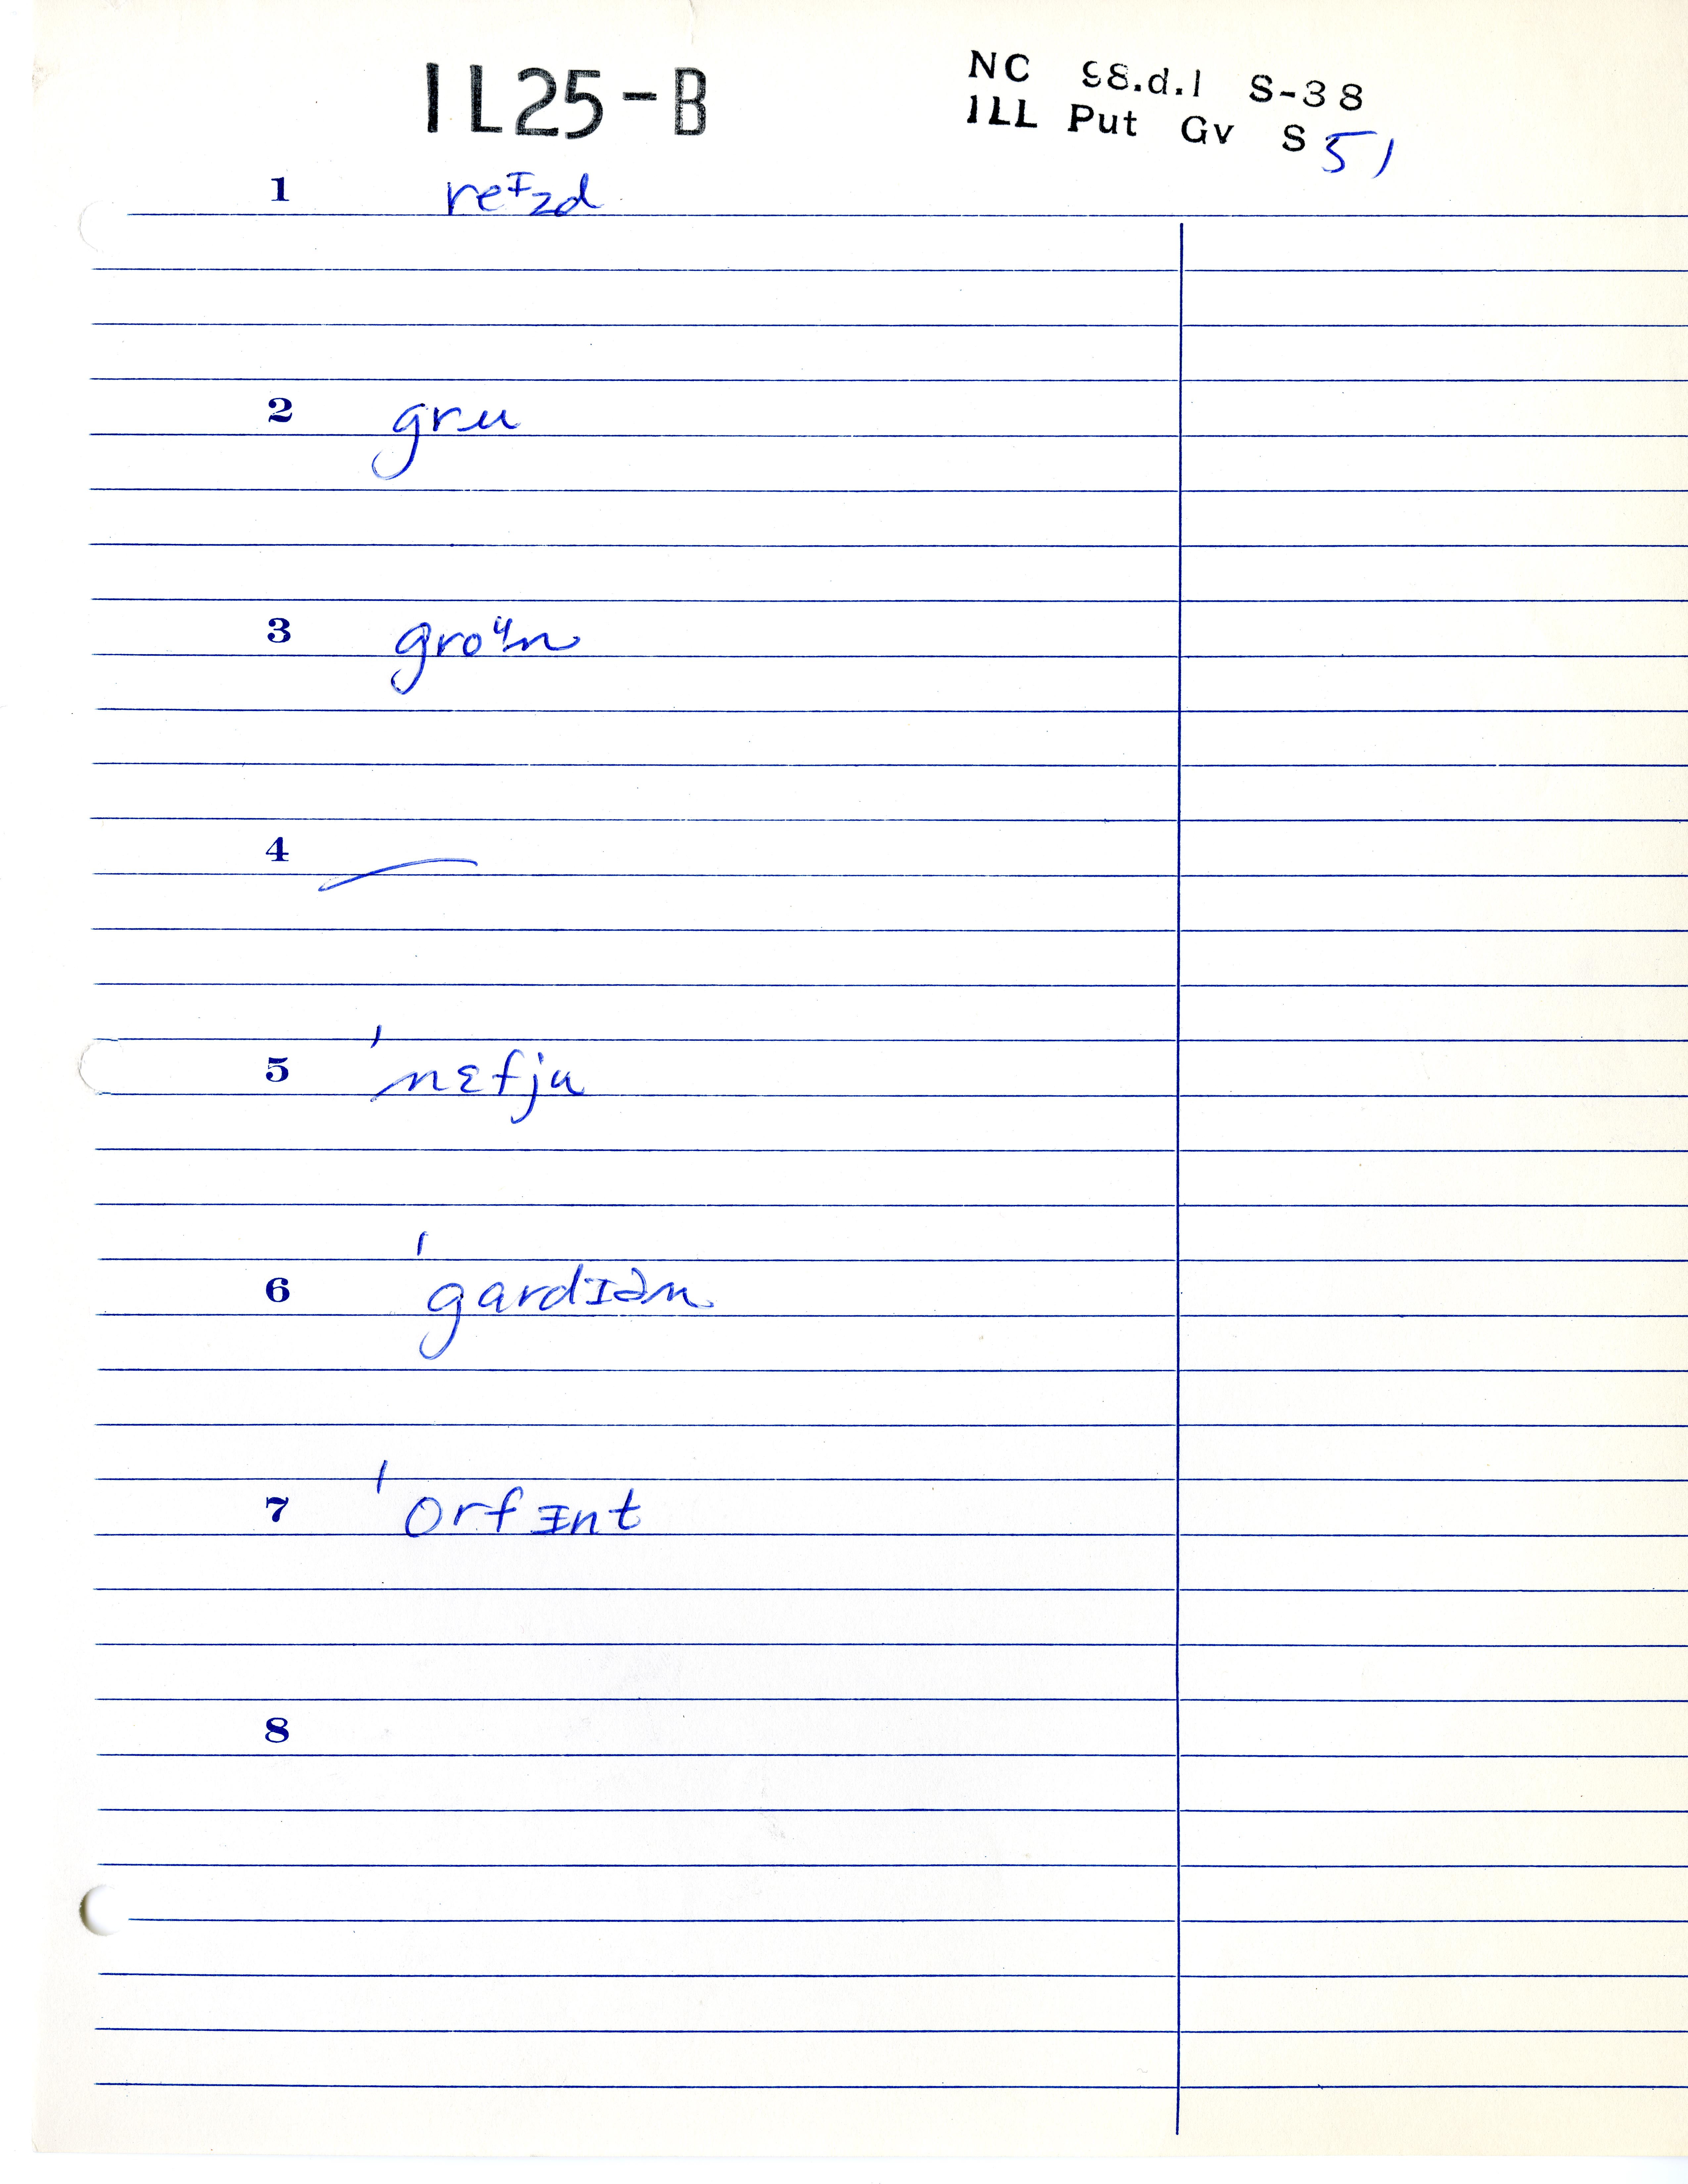 1L25-B
NC 98.d.1 S-38
ILL Put Gv S 51
1 reᶦzd
2 gru
3 groᶣn
4 —
5 ˈnɛfju
6 ˈgardɪən
7 ˈorfɪnt
8